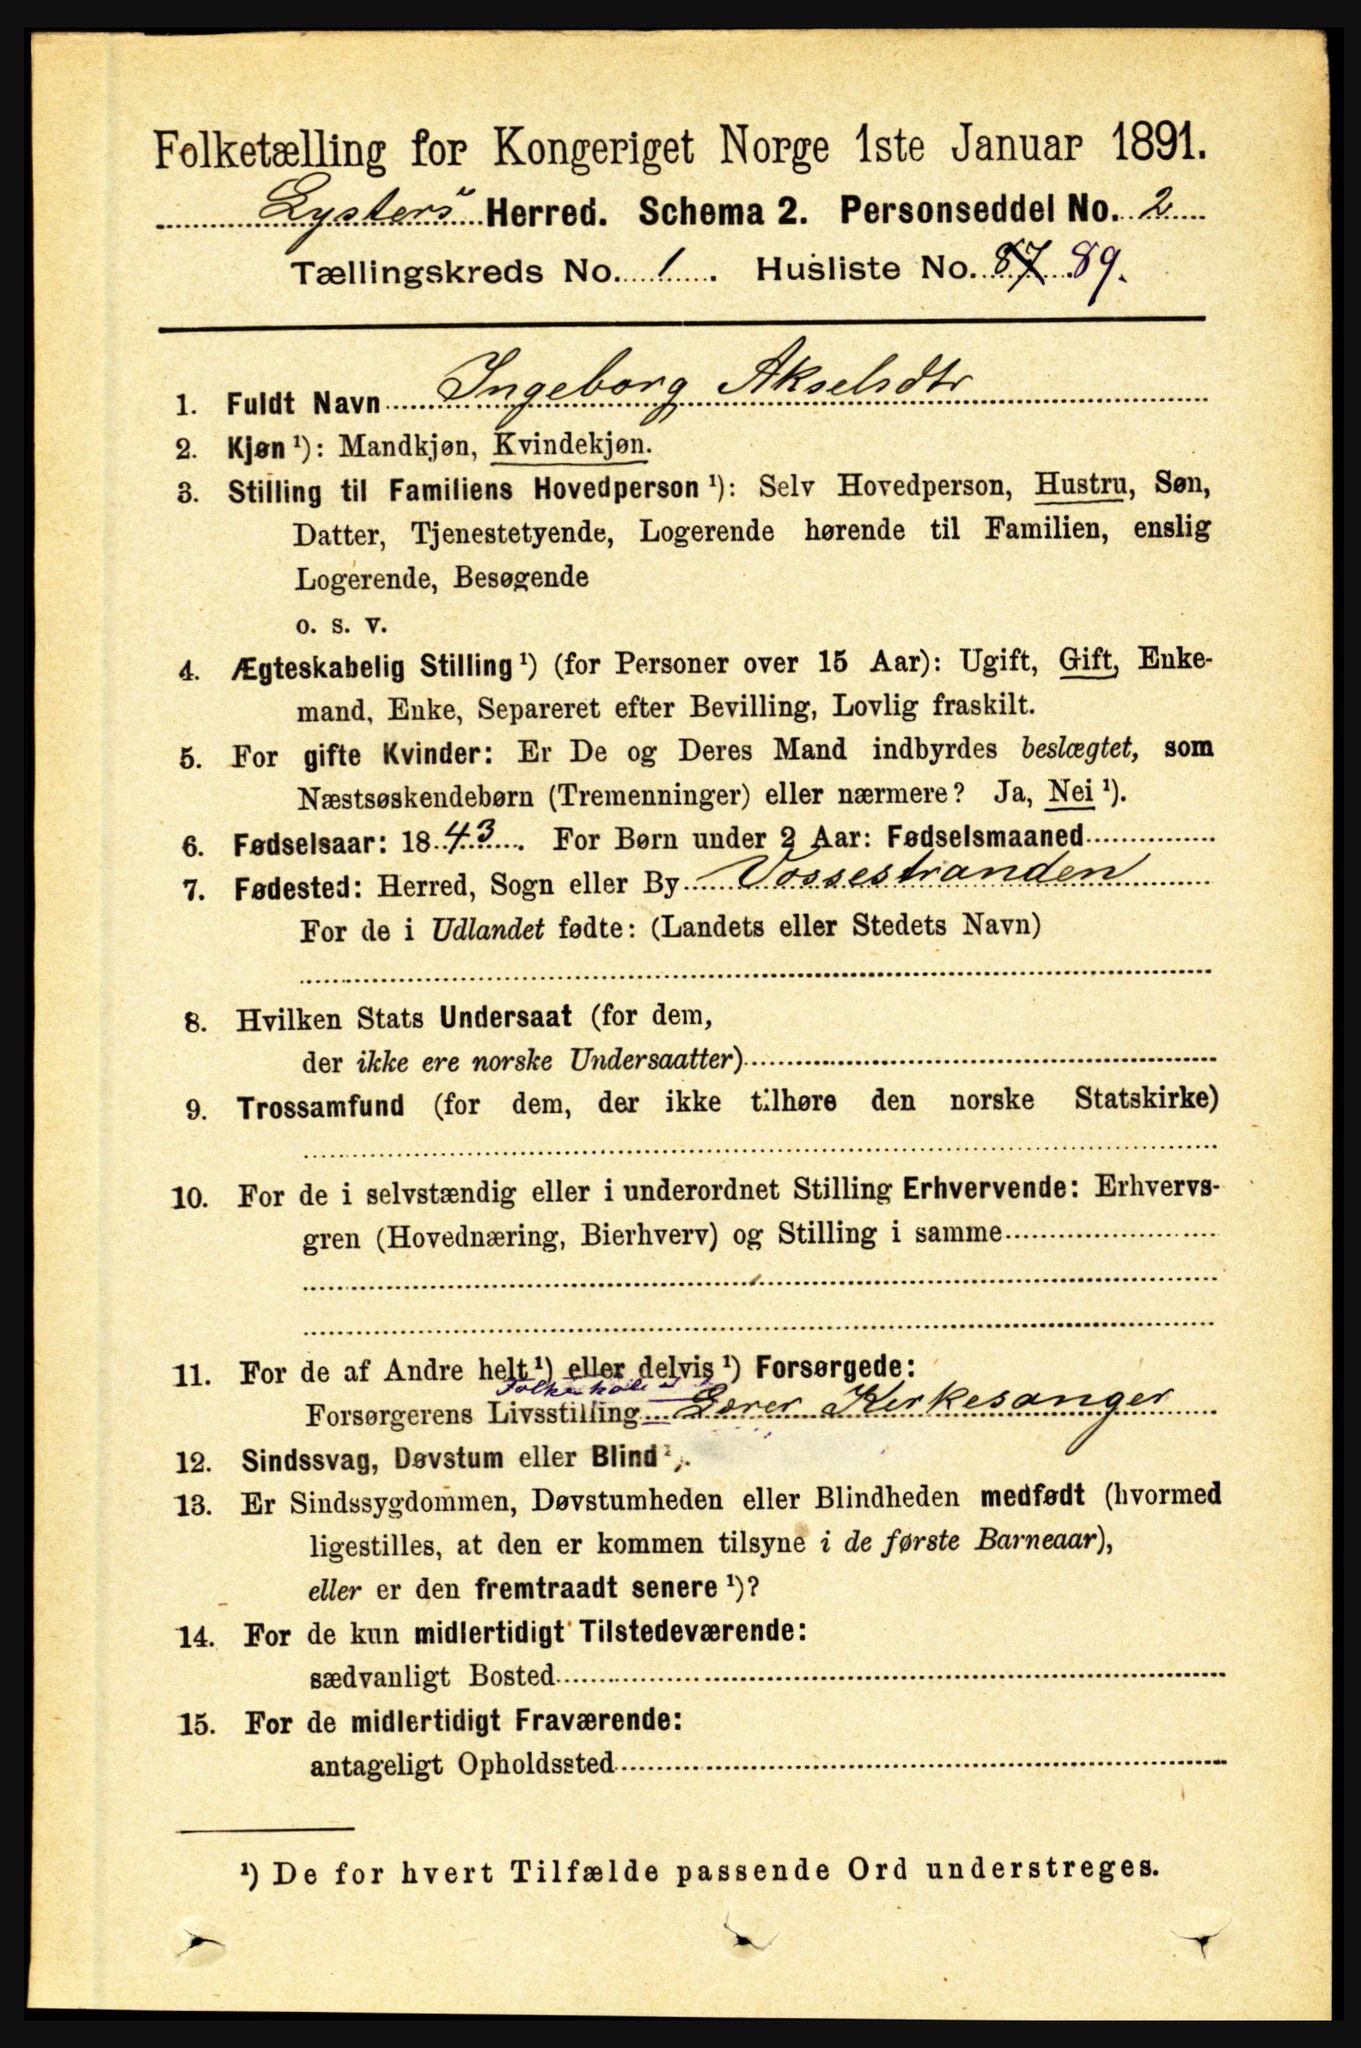 Folketælling for Kongeriget Norge 1ste Januar 1891.
Lysters Herred. Schema 2. Personseddel No. 2
Tællingskreds No. 1. Husliste No. 87 89.
1. Fuldt Navn Ingeborg Akselsdtr
2. Kjøn ¹): Mandkjøn, Kvindekjøn.
3. Stilling til Familiens Hovedperson ¹): Selv Hovedperson, Hustru, Søn,
Datter, Tjenestetyende, Logerende hørende til Familien, enslig
Logerende, Besøgende
o. s. v.
4. Ægteskabelig Stilling ¹) (for Personer over 15 Aar): Ugift, Gift, Enke-
mand, Enke, Separeret efter Bevilling, Lovlig fraskilt.
5. For gifte Kvinder: Er De og Deres Mand indbyrdes beslægtet, som
Næstsøskendebørn (Tremenninger) eller nærmere? Ja, Nei ¹).
6. Fødselsaar: 1843. For Børn under 2 Aar: Fødselsmaaned
7. Fødested: Herred, Sogn eller By Vossestranden
For de i Udlandet fødte: (Landets eller Stedets Navn)
8. Hvilken Stats Undersaat (for dem,
der ikke ere norske Undersaatter)
9. Trossamfund (for dem, der ikke tilhøre den norske Statskirke)
10. For de i selvstændig eller i underordnet Stilling Erhvervende: Erhvervs-
gren (Hovednæring, Bierhverv) og Stilling i samme
11. For de af Andre helt ¹) eller delvis ¹) Forsørgede:
Forsørgerens Livsstilling Lærer Kirkesanger
12. Sindssvag, Døvstum eller Blind ¹).
13. Er Sindssygdommen, Døvstumheden eller Blindheden medfødt (hvormed
ligestilles, at den er kommen tilsyne i de første Barneaar),
eller er den fremtraadt senere ¹)?
14. For de kun midlertidigt Tilstedeværende:
sædvanligt Bosted
15. For de midlertidigt Fraværende:
antageligt Opholdssted
¹) De for hvert Tilfælde passende Ord understreges.